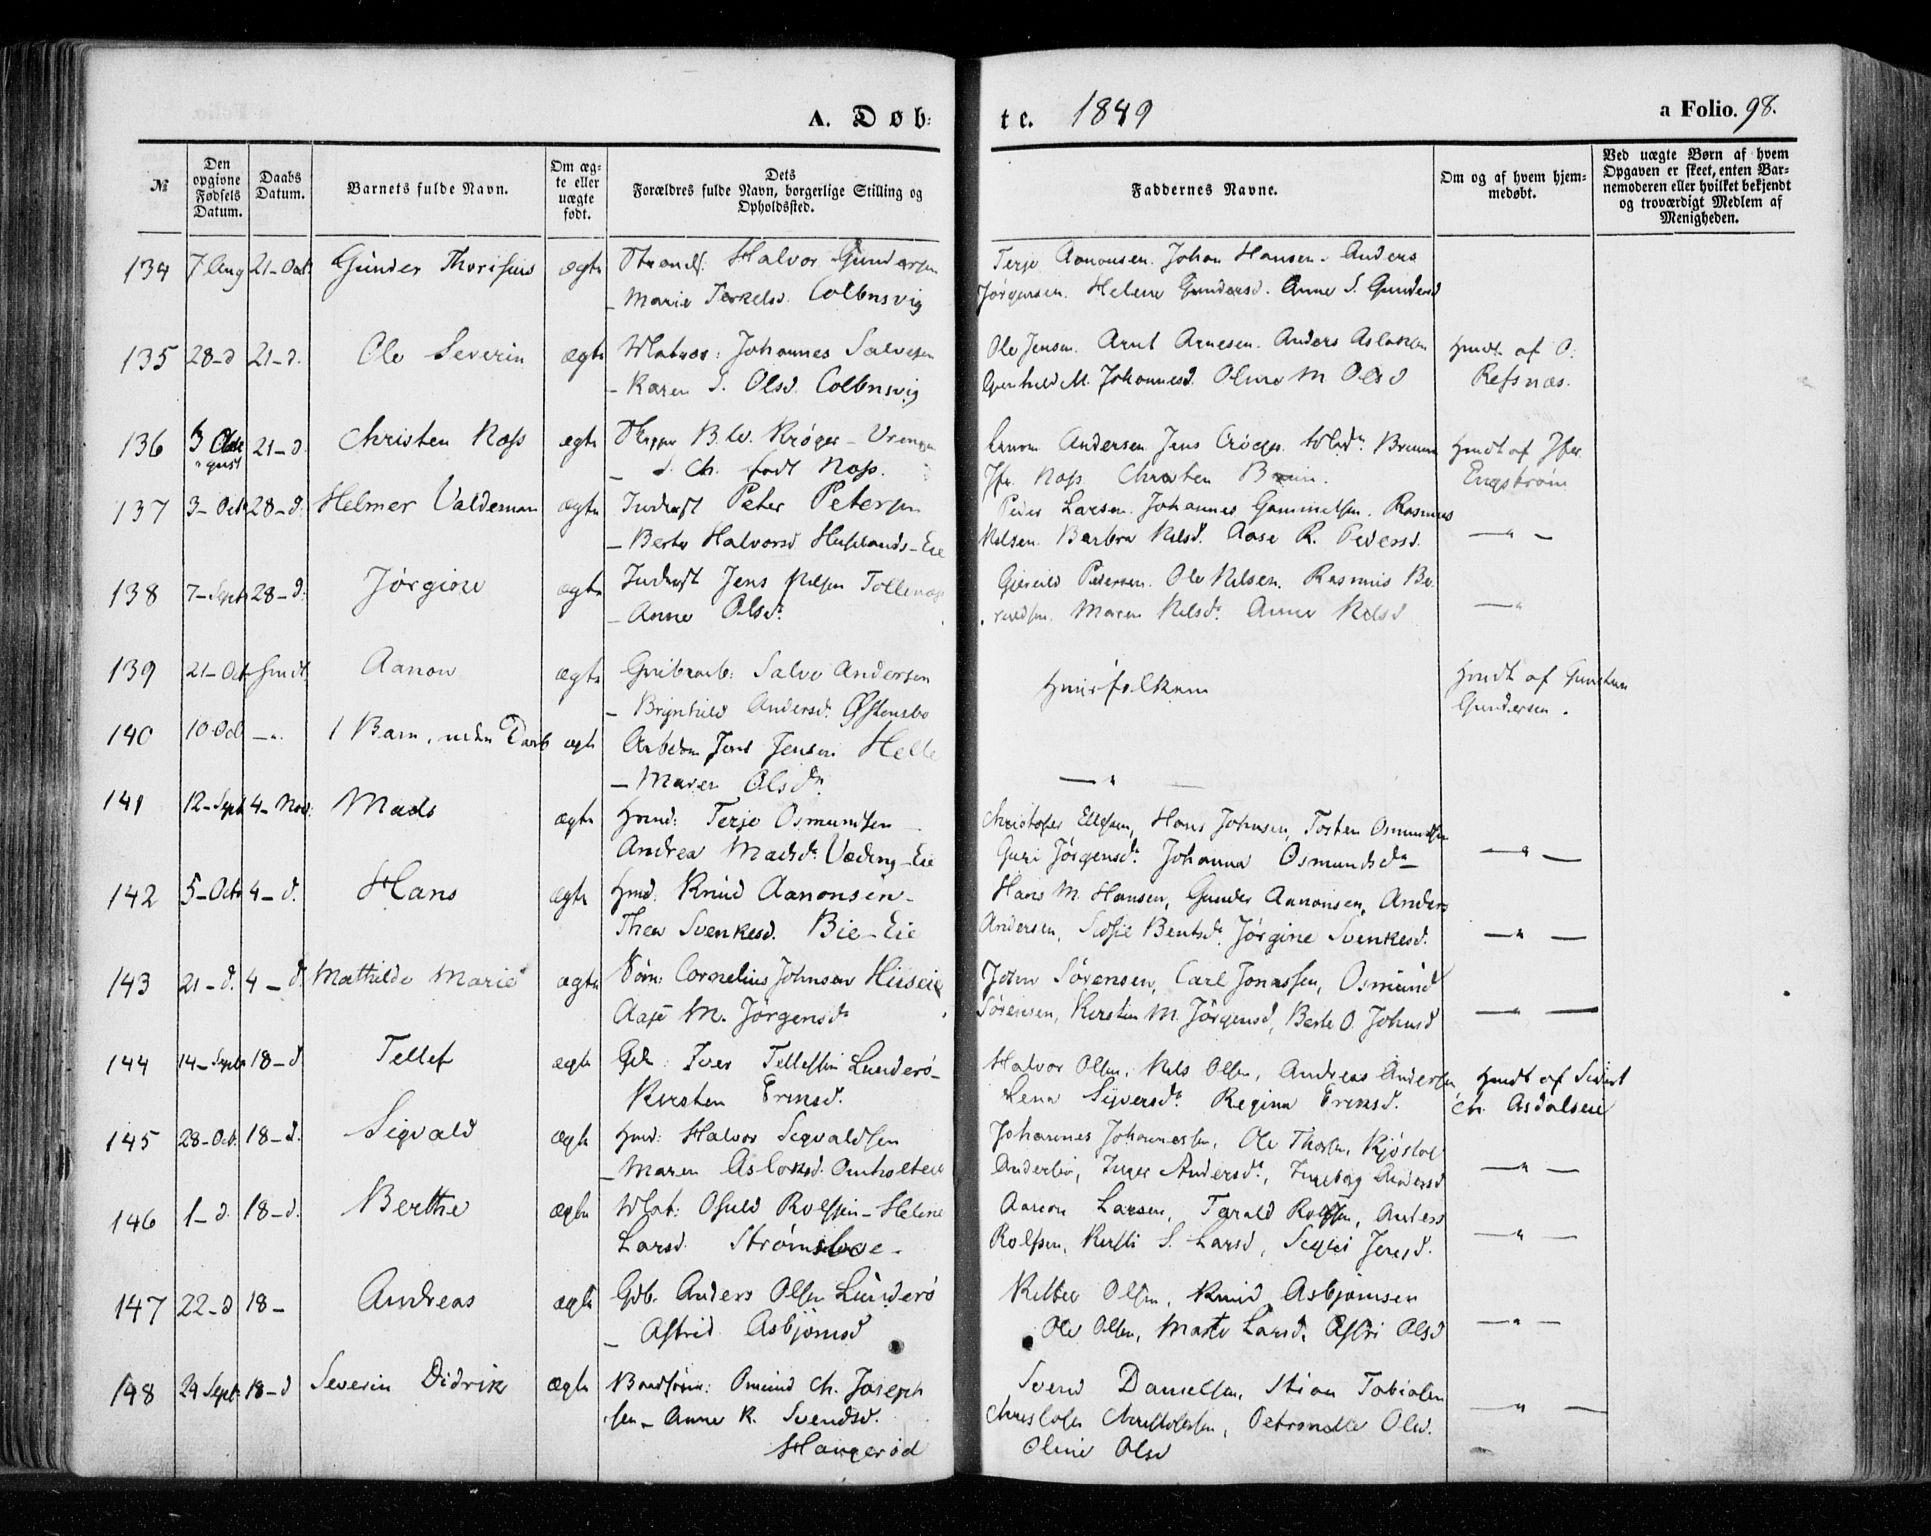 A. Døb: te. 1849 a Folio. 98.
№
Den opgivne Fødsels Datum.
Daabs Datum.
Barnets fulde Navn.
Om ægte eller uægte født.
Dets Forældres fulde Navn, borgerlige Stilling og Opholdssted.
Faddernes Navne.
Om og af hvem hjemmedøbt.
Ved uægte Børn af hvem Opgaven er skeet, enten Barnemoderen eller hvilket bekjendt og troværdigt Medlem af Menigheden.
134 7 Aug 21-Oct. Gunder ægte Halvor Gundersen
Marie Terkelsd. Colbnsvig
Terje Aanonsen. Johan Hansen. Anders
Jørgensen. Helene Gundersd. Anne S. Gundersd
135 28-d 21-d. Ole Severin ægte Matros: Johannes Salvesen
Karen S. Olsd. Colbnsvig
Ole Jensen. Arnt Arnesen. Anders Aslaksen
Gunhild M. Johannesd. Oline M Olsd
Hmdt. af O.
Refsnæs.
136 21-d. Christen Næss ægte Skipper B. W. Krøger - Vrengen
S. Ch. født Næss.
Andersen Jens Crøger
Jfr. Næss Christen
Hmdt af Jfr.
Engstrøm
137 3-Octr 28-d. Helmer Valdemar ægte Inderst Peter Petersen
- Berte Halvorsd. - Eie
Peder Larsen. Johannes Gammelsen. Rasmus
Nilsen. Barbra Nilsd. Aase R. Pedersd.
— " —
138 7-Septr 28-d. Jørgine ægte Inderst Jens Nilsen
- Anne Olsdr
Pedersen. Ole Nilsen. Rasmus
Maren Nilsdr. Anne Nilsd
— "
139 21-Oct Hmdt. Aanon ægte Salve Andersen
- Brynhild Andersd. Østensbo
Huusfolkene
Hmdt af
Gundersen.
140 10 Oct — ". 1 Barn, uden Daab ægte Jens Jensen Helle
- Maren Olsdr
— "
141 12-Sept 4-Nov: Mads ægte Hmd: Terje Osmundsen -
Andrea Madsdr. Væding-Eie
Christofer Ellefsen, Hans Johnsen, Tosten Osmundsen
Guri Jørgensdr. Johanna Osmundsdr -
— " —
142 5-Octr 4-d. Hans ægte Hmd. Knud Aanonsen -
Thea Svenkesd. Bie-Eie
Hans M. Hansen, Gunder Aanonsen, Anders
Andersen, Bentsdr. Jørgine Svenkesd.
— " —
143 21-d. 4-d. Mathilde Marie ægte Cornelius Johnsen
Aase M. Jørgensdr
John Sørensen, Carl Jonassen, Osmund
Sørensen, Kirsten M. Jørgensd, Berte O. Johnsd
— " —
144 14-Septr 18-d Tellef ægte Gdb: Iver Tellefsen Lunderø-
Kirsten Erensd.
Halvor Olsen, Nils Olsen, Andreas Andersen
Lena Siversdr. Regina
Hmdt af
Ch. Asdalseie
145 28-Oct. 18-d. Sigvald ægte Hmd: Halvor Segvaldsen
- Maren Aslaksd. Omholteie
Johannes Johannessen, Ole
Inger Andersdr, Ingeborg Andersd
— " —
146 1-d. 18-d. Berthe ægte Mat: Osuld Rolfsen - Helene
Larsd. Strømsboe -
Aanon Larsen, Tarald Rolfsen, Anders
Rolfsen, Kirsti S. Larsd, Jensd.
— " —
147 22-d 18- Andreas ægte Gdb. Anders Olsen Lunderø
- Astrid Asbjørnsd
Kittel Olsen, Knud Asbjørnsen
Ole Olsen, Marte Larsd. Astri Olsd
— " —
148 24 Sept. 18-d Severin Didrik ægte Omund Ch. Joseph
sen - Anne K. Svendsd.
Haugerød
Svend Danielsen, Stian Tobiasen
Christofer Christofersen, Petronelle Olsd.
Oline Olsd
— " —